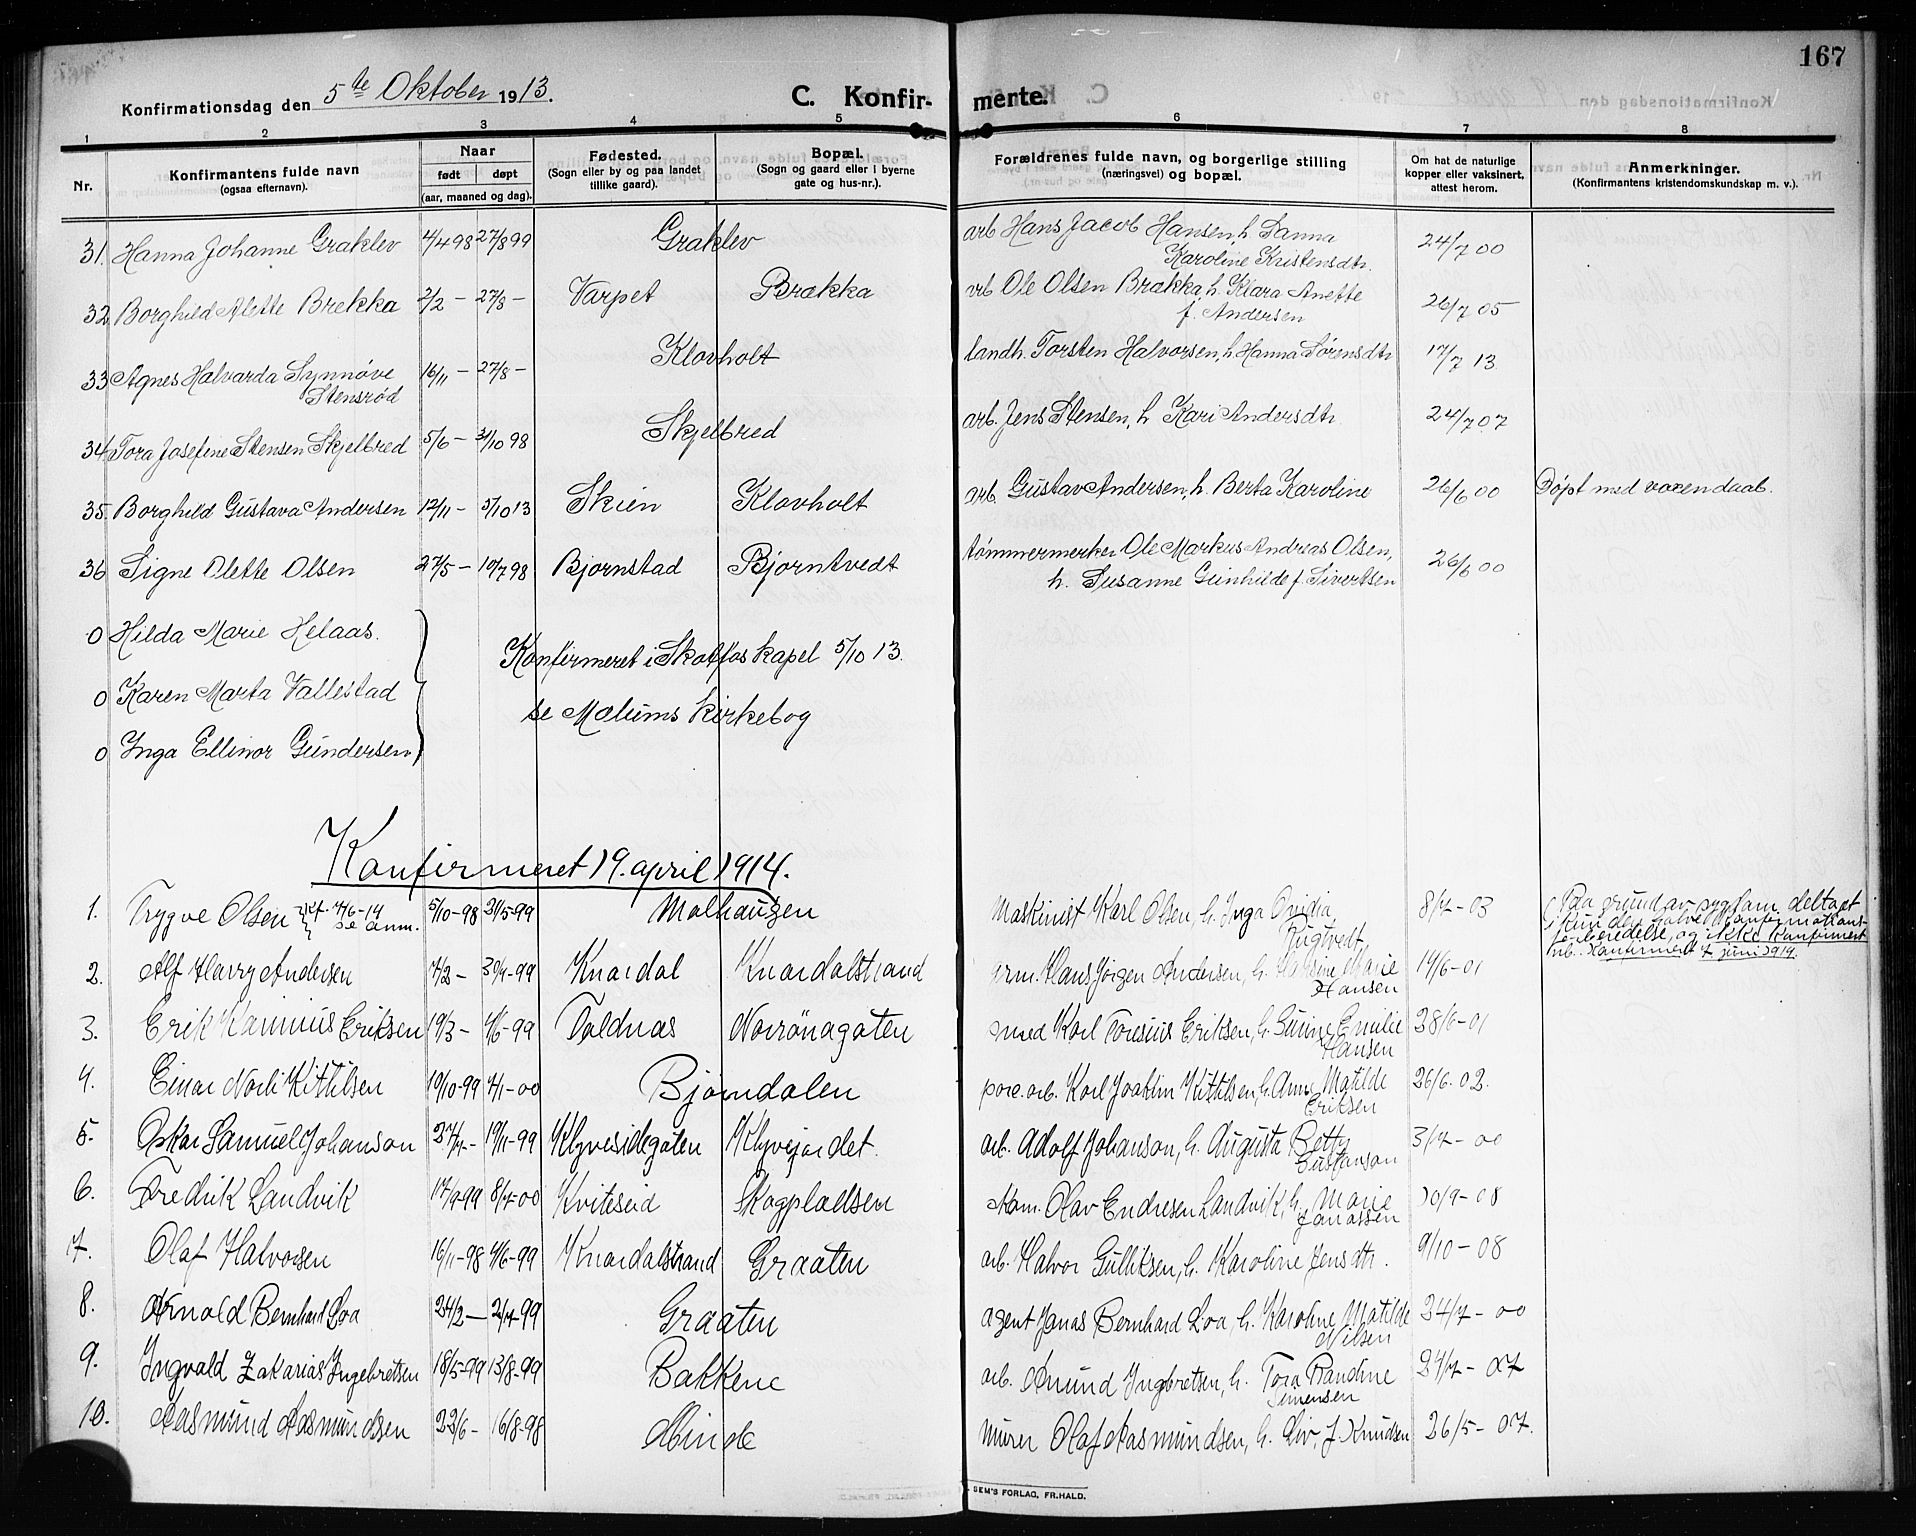 167
Konfirmationsdag den 5te Oktober 1913.
C. Konfir- merte.
1 2 3 4 5 6 7 8
Nr.
Konfirmantens fulde navn
(ogsaa efternavn).
Naar
født døpt
(aar, maaned og dag).
Fødested.
(Sogn eller by og paa landet
tillike gaard).
Bopæl.
(Sogn og gaard eller i byerne
gate og hus-nr.).
Forældrenes fulde navn, og borgerlige stilling
(næringsvei) og bopæl.
Om hat de naturlige
kopper eller vaksinert,
attest herom.
Anmerkninger.
(Konfirmantens kristendomskundskap m. v.).
31. Hanna Johanne Graklev 4/4 98 27/8 99 Graklev arb Hans Jacob Hansen, h. Sanna
Karoline Kristensdtr. 24/7 00
32 Borghild Alette Brekka 2/2 – 27/8 – Varpet Brækka arb Ole Olsen Brækka, h. Klara Anette
f. Andersen 26/7 05
33 Agnes Halvarda Synnøve
Stensrød 16/11 – 27/8 – Klovholt landh. Torsten Halvorsen, h. Hanna Sørensdtr 17/7 13.
34 Tora Josefine Stensen Skjelbred 5/6 – 31/10 98 Skjelbred arb. Jens Stensen, h. Kari Andersdtr. 24/7 07
35. Borghild Gustava Andersen 12/11 – 5/10 13 Skien Klovholt arb. Gustav Andersen, h. Berta Karoline 26/6 00 Døpt med voxendaab.
36 Signe Olette Olsen 27/5 – 10/7 98 Bjørnstad Bjørntvedt tømmermerker Ole Markus Andreas Olsen,
h. Susanne Gunhilde f. Sivertsen 26/6 00
0 Hilda Marie Helaas.
0 Karen Marta Vallestad
0 Inga Ellinor Gundersen
Konfirmeret i Skotfos kapel 5/10 13.
se Melums kirkebog
Konfirmeret 19. april 1914.
1. Trygve Olsen kf. 7/6-14
se anm. 5/10-98 21/5-99 Molhaugen Maskinist Karl Olsen, h. Inga Ovidia
Rugtvedt, 8/7-03 Paa grund av sygdom deltaget
i kun den halve konfirmations-
forberedelse, og ikke konfirmert
nb. Konfirmert 7 juni 1914.
2. Alf Harry Andersen 7/2 – 30/4-99 Knardal Knardalstrand Hans Jørgen Andersen, h. Hansine Marie
Hansen 14/6-01
3. Erik Rasmus Eriksen 19/3 – 4/6-99 Foldnas Norrönagaten smed Karl Toresius Eriksen, h. Gurine Emilie
Hansen 28/6-01
4. Einar Norli Kittilsen 10/10-99 7/1-00 Bjørndalen porc. arb. Karl Joakim Kittilsen, h. Anna Matilde
Eriksen 26/6-02.
5. Oskar Samuel Johanson 27/7- 19/11-99 Klyvesidegaten Klyvejordet. arb. Adolf Johanson, h. Augusta Betty
Gustavson 3/7-00
6. Fredrik Landvik 17/9-99 8/7-00 Kviteseid Skogpladsen Olav Endresen Landvik, h. Marie
Jonassen 10/9-08
7. Olaf Halvorsen 16/11-98 4/6-99 Knardalstrand Graaten arb. Halvor Gulliksen, h. Karoline Jensdtr. 9/10-08
8. Arnold Bernhard Loa 24/2 – 2/7-99 Graaten agent Jonas Bernhard Loa, h. Karoline Matilde
Nilsen 24/7-00
9. Ingvald Zakarias Ingebretsen 18/5-99 13/8-99 Bakkene arb. Amund Ingbretsen, h. Tora Randine
Simensen 24/7-07
10. Aasmund Aasmundsen 23/6- 16/8-98 Minde murer Olaf Aasmundsen, h. Liv, f. Knudsen 26/5-07.
SEM'S FORLAG, FR.HALD.